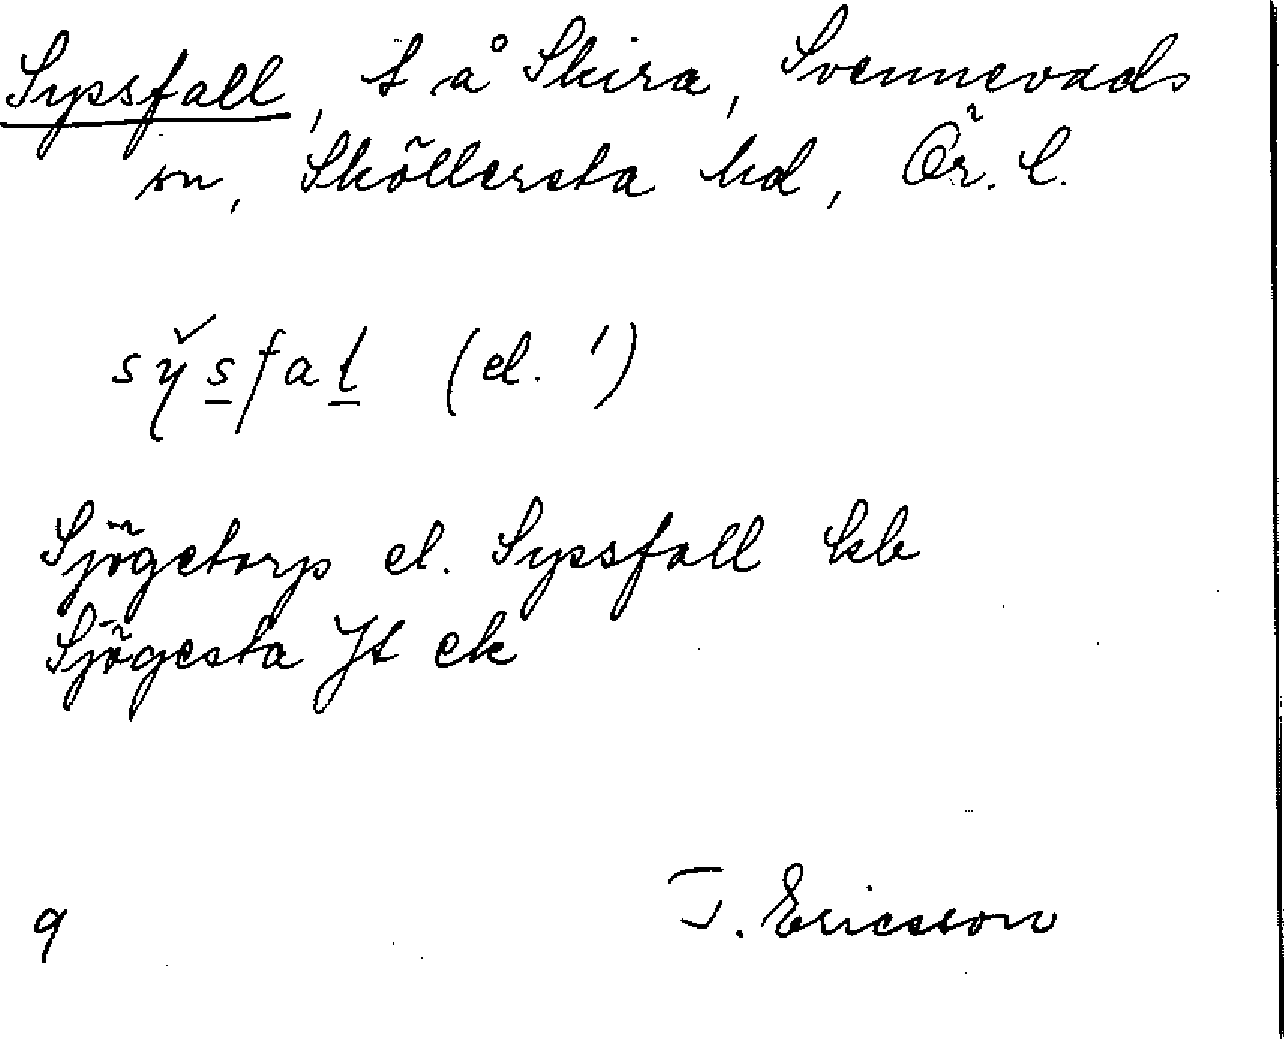 Sypsfall, t å Skira, Svennevads
sn, Sköllersta hd, Ör. l.
sy̌s̲fat̲ (el. ')
Sjögetorp el. Sypsfall kb
Sjögesta Jt ek
9 J. Ericsson